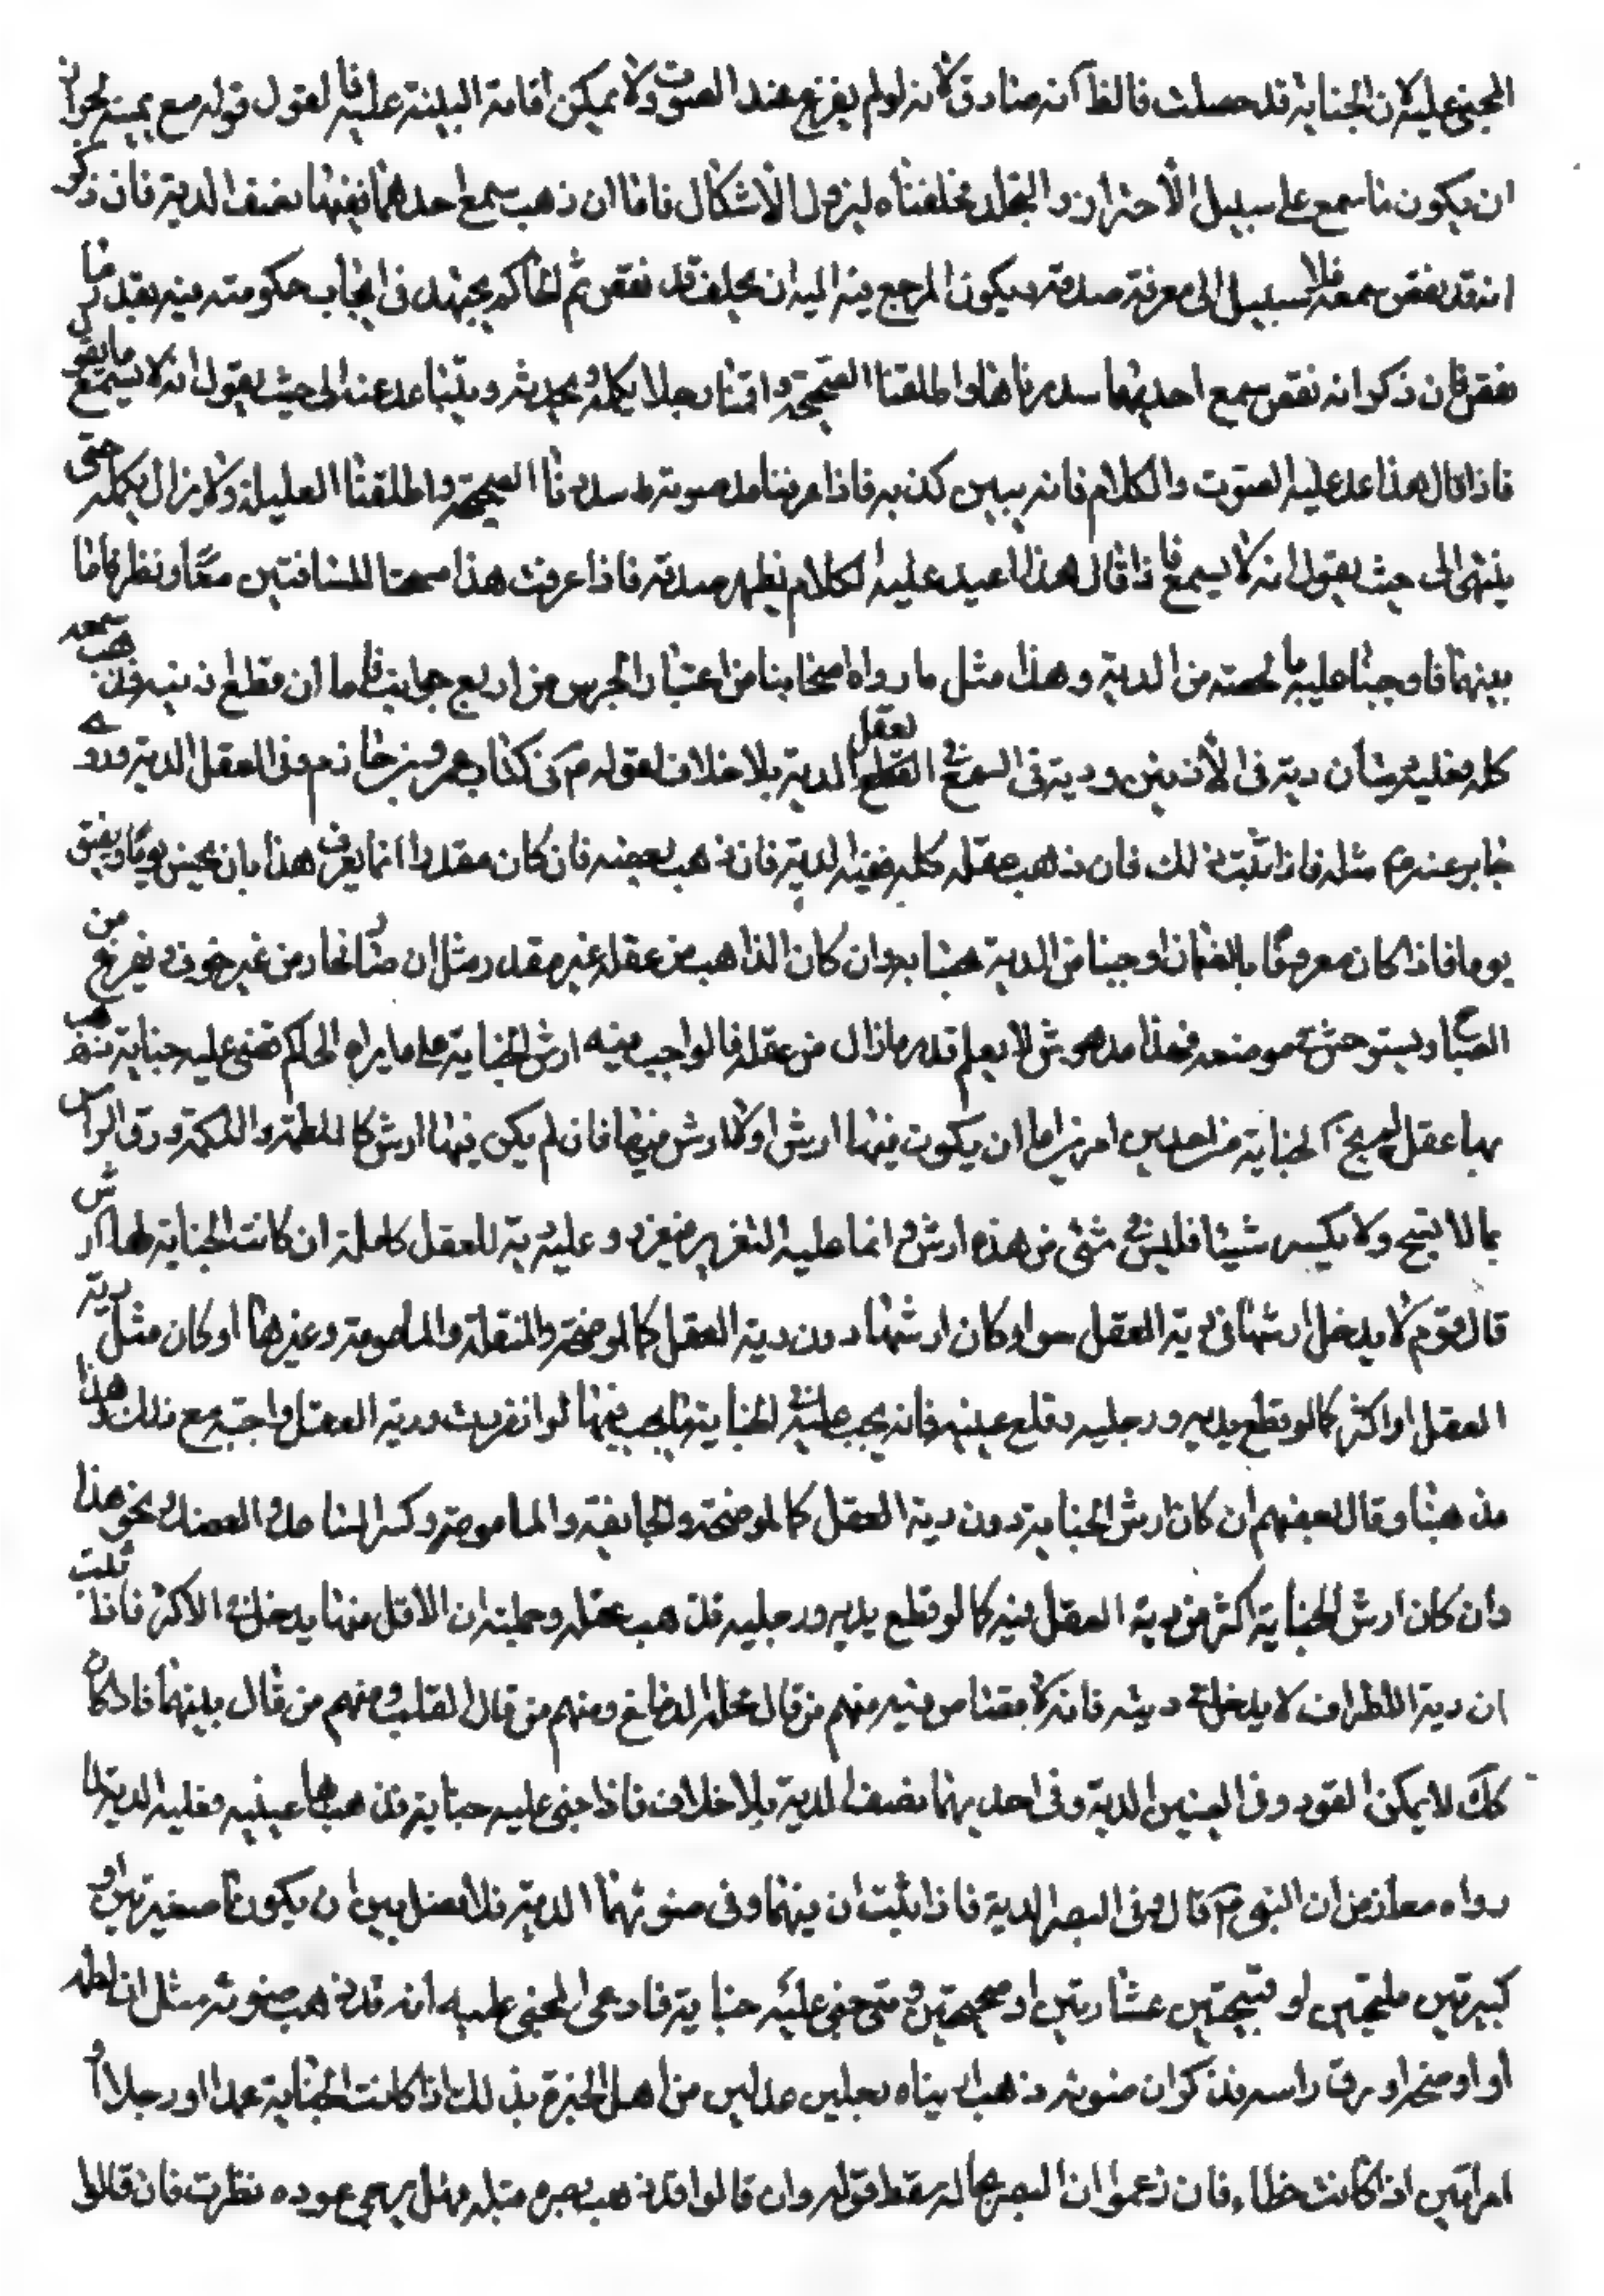 المجنى عليه لان الجناية قد حصلت فالظاهر انه صادق لانه لو لم يفزع عند الصوت ولا يمكن اقامة البينة عليه فالقول قوله مع يمينه لجواز
ان يكون ما سمع على سبيل الاحتراز والتجلد فحلفناه ليزول الاشكال فاما ان ذهب سمع احدهما ففيها نصف الدية فان ذكر
انه قد نقص سمعه فلا سبيل الى معرفة صدقه فيكون المرجع فيه اليه ان يحلف قد نقص ثم الحاكم يجتهد فى ايجاب حكومته فيه بقدر ما
نقص فان ذكر انه نقص سمع احديهما سددناها واطلقنا الصحيحة واقمنا رجلا يكلمه ويحدثه ويتباعد عنه الى حيث يقول انه لا يسمع ما يقول
فاذا قال هذا عد عليه الصوت والكلام فانه يبين كذبه فاذا عرفنا مد صوته سددنا الصحيحة واطلقنا العليلة ولا يزال يكلمه حتى
ينتهى الى حيث يقول انه لا يسمع فاذا قال هذا اعيد عليه الكلام ليظهر صدقه فاذا عرفت هذا مسحنا المسافتين معا ونظر فاما
بينهما فاوجبنا عليه بالحصة من الدية وهذا مثل ما رواه اصحابنا من اعتبار الجرس من اربع جوانب فاما ان قطع اذنيه فذهب سمعه
كله فعليه ديتان دية فى الاذنين ودية فى السمع فى العقل الدية بلا خلاف لقوله م فى كتاب عمرو بن حزم وفى العقل الدية وروى
جابر عنه م مثله فاذا ثبت ذلك فان ذهب عقله كله ففيه الدية فان ذهب بعضه فان كان مقدرا انما يعرف هذا بان يجن يوما ويفيق
يوما فاذا كان معروفا بالزمان اوجبنا من الدية بحسابه وان كان الذاهب من عقله غير مقدر مثل ان صار نهاره من غير خوف يفزع من
الصياح ويستوحش فى موضعه فهذا مدهوش لا يعلم قدر ما زال من عقله فالواجب فيه ارش الجناية على ما يراه الحاكم فمتى جنى عليه جناية فذهب
بها عقله لم يخل الجناية من احد امرين اما ان يكون فيها ارش او لا ارش فيها فان لم يكن فيها ارش كاللطمة واللكمة ودق الراس
بما لا يجرح ولا يكسر شيئا فليس فى شىء من هذه ارش وانما عليه التعزير فيعزر وعليه دية العقل كاملة ان كانت الجناية لها ارش
قال قوم لا يدخل ارشها فى دية العقل سواء كان ارشها دون دية العقل كالموضحة والمنقلة والمامومة وغيرها او كان مثل دية
العقل او اكثر كما لو قطع يديه ورجليه وقلع عينيه فانه يجب عليه فى الجناية ما يجب فيها لو انفردت ودية العقل واجبة مع ذلك وهذا
مذهبنا وقال بعضهم ان كان ارش الجناية دون دية العقل كالموضحة والجايفة والمامومة وكسر الساعد والعضد ونحو هذا
وان كان ارش الجناية اكثر من دية العقل فيه كما لو قطع يديه ورجليه فذهب عقله وجملته ان الاقل منها يدخل فى الاكثر فاذا ثبت
ان دية الاطراف لا يدخل فى ديته فانه لا قصاص فيه منهم من قال محله الدماغ ومنهم من قال القلب ومنهم من قال بينهما فاذا كان
كك لا يمكن القود وفى العينين الدية وفى احديهما نصف الدية بلا خلاف فاذا جنى عليه جناية فذهب بها عينيه فعليه الدية لما
رواه معاذ من ان النبى م قال وفى البصر الدية فاذا ثبت ان فيهما وفى ضوئهما الدية فلا فصل بين ان يكونا صغيرتين او
كبيرتين مليحتين او قبيحتين عشاوتين او صحيحتين ومتى جنى عليه جناية فادعى المجنى عليه انه قد ذهب ضوئه مثل ان لطمه
او اوضحه او دق راسه فذكر ان ضوئه ذهب اريناه رجلين عدلين من اهل الخبرة بذلك اذا كانت الجناية عمدا او رجلا و
امراتين اذا كانت خطاء فان زعموا ان البصر بحاله سقط قوله وان قالوا قد ذهب بصره مثله فهل يرجى عوده نظرت فان قالوا